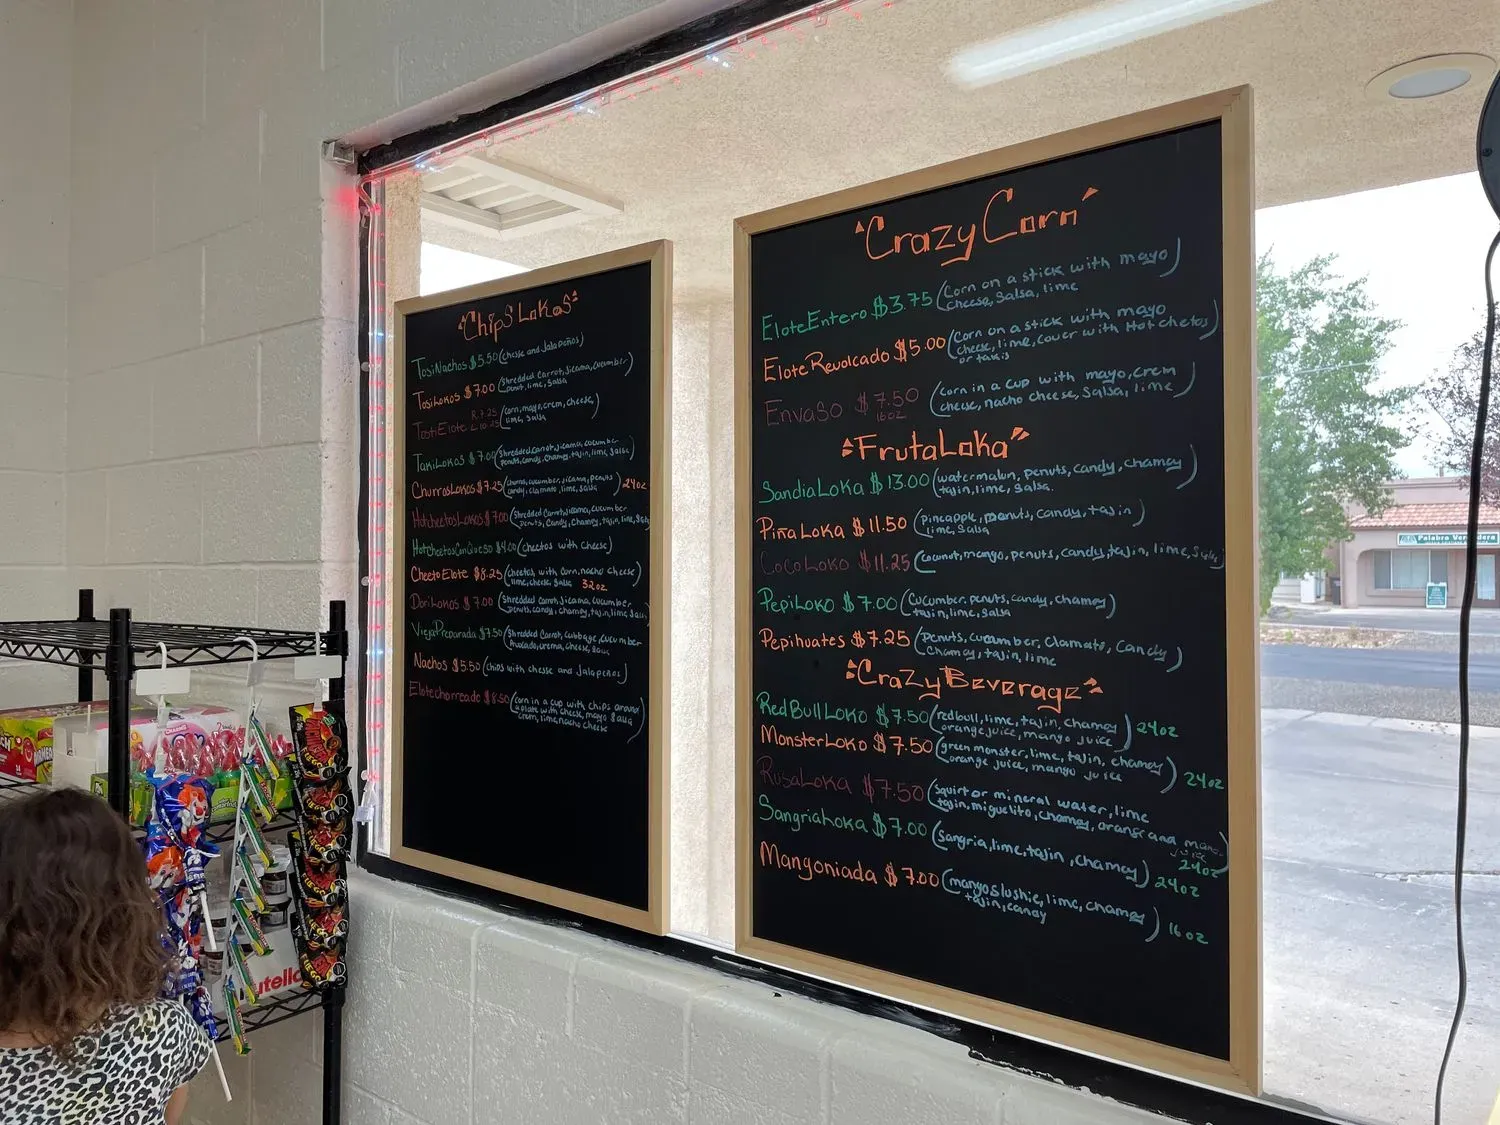 "Chips Lokos"
TosiNachos $5.50 (chesse and Jalapeños)
TosiLokos $7.00 (Shredded Carrot, Jicama, Cucumber
penut, lime, salsa)
TostiElote R 7.25 (corn, mayo, crem, cheese,
L 10.25 lime, salsa)
TakiLokos $7.00 (Shredded Carrot, Jicama, cucumber
penuts, candy, chamoy, tajin, lime, Salsa)
ChurrosLokos $7.25 (churros, cucumber, jicama, penuts
candy, clamato, lime, salsa) 24oz
HotcheetosLokos $7.00 (Shredded Carrot, Jicama, cucumber
penuts, Candy, Chamoy, tajin, lime, Salsa
HotCheetosConQueso $4.00 (cheetos with cheese)
CheetoElote $8.25 (cheetos, with corn, nacho cheese)
lime, cheese, Salsa 32oz
DoriLokos $7.00 (Shredded Carrot, Jicama, cucumber
penuts, candy, chamoy, tajin, lime, Salsa)
ViejaPreparada $7.50 (Shredded Carrot, Cabbage, cucumber
Avocado, crema, Cheese, Salsa
Nachos $5.50 (chips with chesse and Jalapeños)
Elotechorreado $8.50 (corn in a cup with chips around
a plate with cheese, mayo Salsa
crem, lime, nacho cheese)
"Crazy Corn"
EloteEntero $3.75 (Corn on a stick with mayo)
cheese, Salsa, lime
EloteRevolcado $5.00 (Corn on a stick with mayo
cheese, lime, cover with Hot chetos)
or takis
Envaso $7.50 (corn in a cup with mayo, crem
16oz cheese, nacho cheese, Salsa, lime)
"FrutaLoka"
SandiaLoka $13.00 (watermalun, penuts, candy, chamoy
tajin, lime, Salsa.)
PiñaLoka $11.50 (pineapple, penuts, candy, tajin)
lime, Salsa
CocoLoko $11.25 (Coconut, mango, penuts, candy, tajin, lime, Salsa)
PepiLoko $7.00 (Cucumber, penuts, candy, chamoy)
tajin, lime, Salsa
Pepihuates $7.25 (Penuts, cucumber, Clamato, Candy
Chamoy, tajin, lime)
"CraZy Beverage"
RedBullLoko $7.50 (redbull, lime, tajin, chamoy) 24oz
orange juice, mango juice
MonsterLoko $7.50 (green monster, lime, tajin, chamoy)
orange juice, mango juice 24oz
RusaLoka $7.50 (Squirt or mineral water, lime
tajin, miguelito, chamoy, orange and mango
juice) 24oz
SangriaLoka $7.00 (Sangria, lime, tajin, chamoy) 24oz
Mangoniada $7.00 (mango slushie, lime, chamoy) 16oz
tajin, candy
Palabra Verdadera
nutella
FUEGO